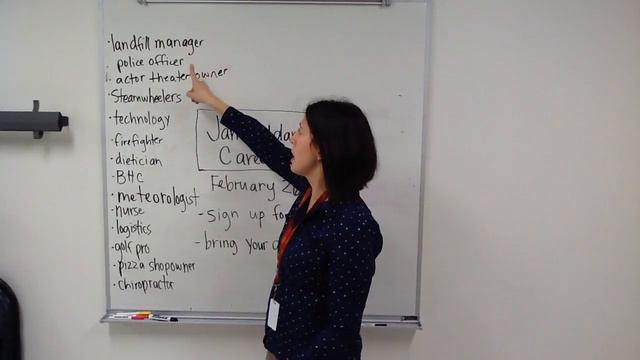 · landfill manager
· police officer
· actor theater owner
· Steamwheelers
· technology
· firefighter
· dietician
· BHC
· meteorologist
· nurse
· logistics
· golf pro
· pizza shop owner
· chiropractor
February
- sign up
- bring your